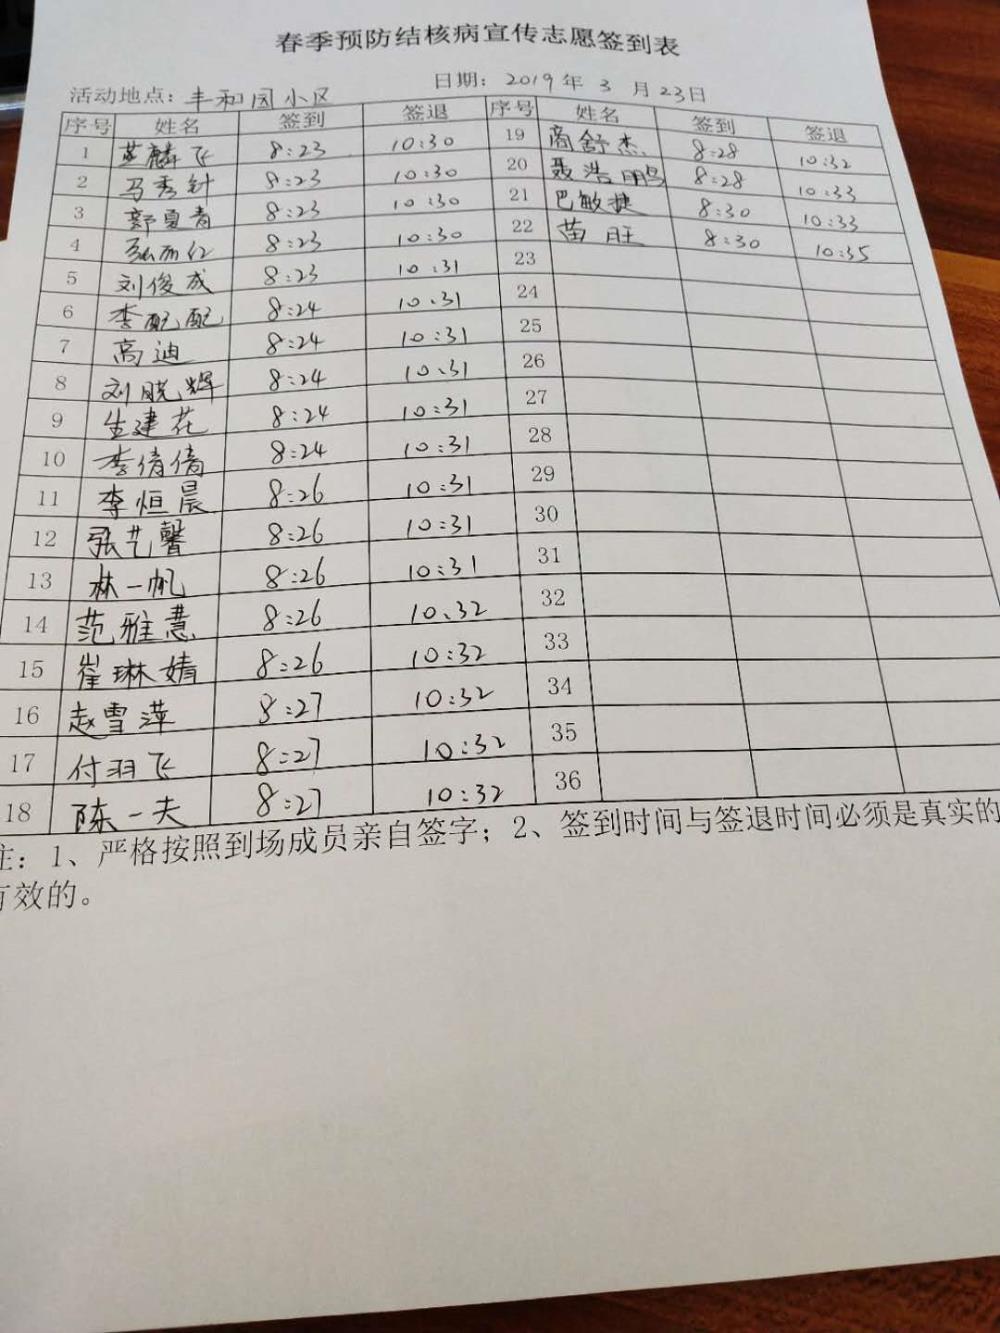 春季预防结核病宣传志愿签到表
活动地点：丰和园小区 日期：2019年3月23日
序号 姓名 签到 签退 序号 姓名 签到 签退
1 麟飞 8:23 10:30 19 商舒杰 8:28 10:32
2 马秀针 8:23 10:30 20 聂浩鹏 8:28 10:33
3 郭夏青 8:23 10:30 21 巴敏捷 8:30 10:33
4 8:23 10:30 22 苗旺 8:30 10:35
5 刘俊成 8:23 10:31 23
6 李配配 8:24 10:31 24
7 高迪 8:24 10:31 25
8 刘晓辉 8:24 10:31 26
9 生建花 8:24 10:31 27
10 李倩倩 8:24 10:31 28
11 李恒晨 8:26 10:31 29
12 张艺馨 8:26 10:31 30
13 林一帆 8:26 10:31 31
14 范雅慧 8:26 10:32 32
15 崔琳婧 8:26 10:32 33
16 赵雪萍 8:27 10:32 34
17 付羽飞 8:27 10:32 35
18 陈一夫 8:27 10:32 36
注：1、严格按照到场成员亲自签字；2、签到时间与签退时间必须是真实的
有效的。